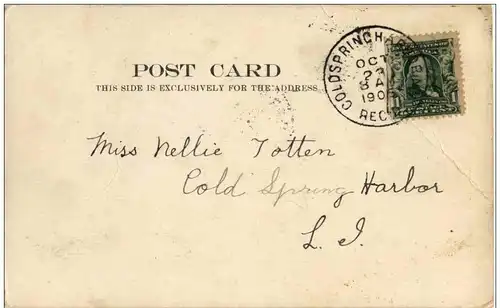 POST CARD
THIS SIDE IS EXCLUSIVELY FOR THE ADDRESS
COLD SPRING HAR
OCT
8 A
190
REC'
1 1
Miss Nellie Totten
Cold Spring Harbor
L. I.